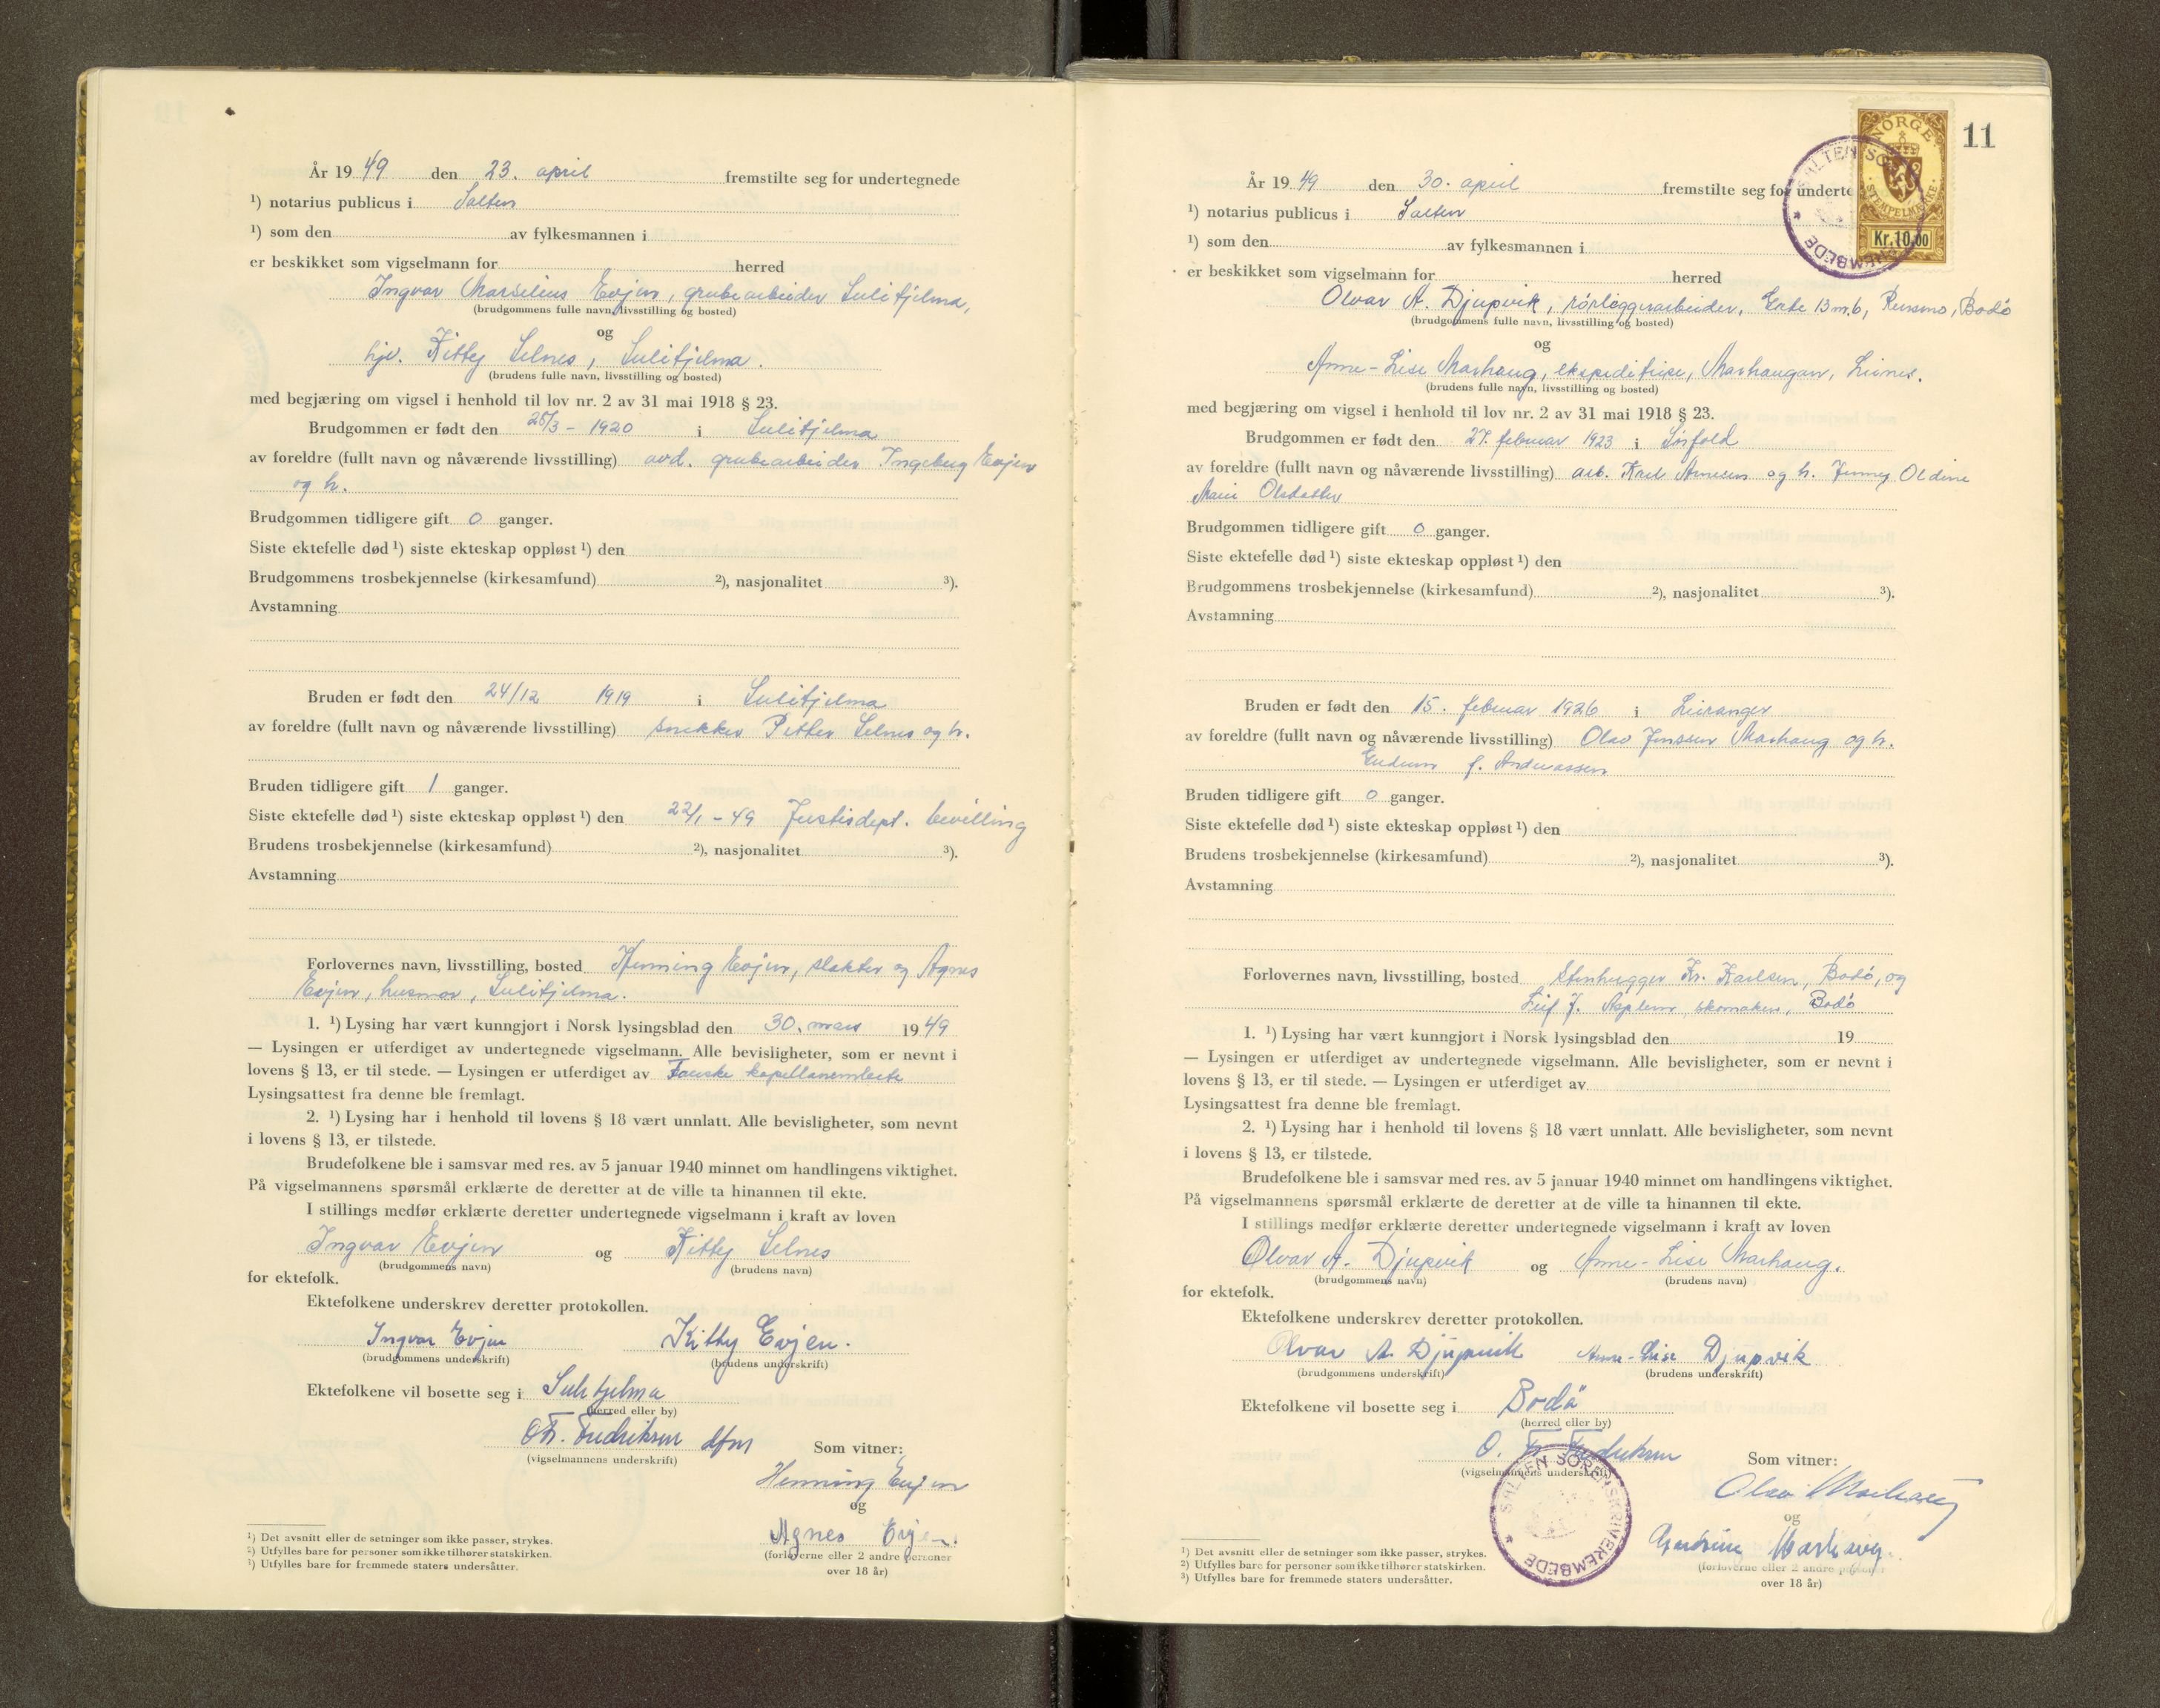 År 1949 den 23. april fremstilte seg for undertegnede
¹) notarius publicus i Salten
¹) som den av fylkesmannen i
er beskikket som vigselmann for herred
Ingvar Marselius Evjen, grubearbeider Sulitjelma,
(brudgommens fulle navn, livsstilling og bosted)
og
hjv. Kitty Selnes, Sulitjelma.
(brudens fulle navn, livsstilling og bosted)
med begjæring om vigsel i henhold til lov nr. 2 av 31 mai 1918 § 23.
Brudgommen er født den /3 - 1920 i Sulitjelma
av foreldre (fullt navn og nåværende livsstilling) avd. grubearbeider Ingeberg Evjen
og h.
Brudgommen tidligere gift 0 ganger.
Siste ektefelle død ¹) siste ekteskap oppløst ¹) den
Brudgommens trosbekjennelse (kirkesamfund) ²), nasjonalitet ³).
Avstamning
Bruden er født den 24/12 1919 i Sulitjelma
av foreldre (fullt navn og nåværende livsstilling) snekker Petter Selnes og h.
Bruden tidligere gift 1 ganger.
Siste ektefelle død ¹) siste ekteskap oppløst ¹) den 22/1 - 49 Justisdept. bevilling
Brudens trosbekjennelse (kirkesamfund) ²), nasjonalitet ³).
Avstamning
Forlovernes navn, livsstilling, bosted Henning Evjen, slakter og Agnes
Evjen, husmor, Sulitjelma.
1. ¹) Lysing har vært kunngjort i Norsk lysingsblad den 30. mars 1949
— Lysingen er utferdiget av undertegnede vigselmann. Alle bevisligheter, som er nevnt i
lovens § 13, er til stede. — Lysingen er utferdiget av Fauske kapellanembete
Lysingsattest fra denne ble fremlagt.
2. ¹) Lysing har i henhold til lovens § 18 vært unnlatt. Alle bevisligheter, som nevnt
i lovens § 13, er tilstede.
Brudefolkene ble i samsvar med res. av 5 januar 1940 minnet om handlingens viktighet.
På vigselmannens spørsmål erklærte de deretter at de ville ta hinannen til ekte.
I stillings medfør erklærte deretter undertegnede vigselmann i kraft av loven
Ingvar Evjen og Kitty Selnes
(brudgommens navn) (brudens navn)
for ektefolk.
Ektefolkene underskrev deretter protokollen.
Ingvar Evjen Kitty Evjen.
(brudgommens underskrift) (brudens underskrift)
Ektefolkene vil bosette seg i Sulitjelma
(herred eller by)
O. Fr. Fredriksen dfm
(vigselmannens underskrift)
Som vitner:
Henning Evjen
og
Agnes Evjen.
(forloverne eller 2 andre personer
over 18 år)
¹) Det avsnitt eller de setninger som ikke passer, strykes.
²) Utfylles bare for personer som ikke tilhører statskirken.
³) Utfylles bare for fremmede staters undersåtter.
11
NORGE
STEMPELMERKE
Kr.10,00
SALTEN SORENSKRIVEREMBEDE
År 1949 den 30. april fremstilte seg for underte
¹) notarius publicus i Salten
¹) som den av fylkesmannen i
er beskikket som vigselmann for herred
Olvar A. Djupvik, rørleggerarbeider, Erke 13 nr. 6, Rensmo, Bodø
(brudgommens fulle navn, livsstilling og bosted)
og
Anne-Lise Marhaug, ekspeditrise, Marhaugan, Leines.
(brudens fulle navn, livsstilling og bosted)
med begjæring om vigsel i henhold til lov nr. 2 av 31 mai 1918 § 23.
Brudgommen er født den 27. februar 1923 i Sørfold
av foreldre (fullt navn og nåværende livsstilling) arb. Karl Arnesen og h. Jenny Oldine
Marie Olsdatter
Brudgommen tidligere gift 0 ganger.
Siste ektefelle død ¹) siste ekteskap oppløst ¹) den
Brudgommens trosbekjennelse (kirkesamfund) ²), nasjonalitet ³).
Avstamning
Bruden er født den 15. februar 1926 i Leiranger
av foreldre (fullt navn og nåværende livsstilling) Olav Jenssen Marhaug og h.
f. Andreassen
Bruden tidligere gift 0 ganger.
Siste ektefelle død ¹) siste ekteskap oppløst ¹) den
Brudens trosbekjennelse (kirkesamfund) ²), nasjonalitet ³).
Avstamning
Forlovernes navn, livsstilling, bosted Stenhugger Kr. Karlsen, Bodø, og
Leif J. skomaker, Bodø
1. ¹) Lysing har vært kunngjort i Norsk lysingsblad den 19
— Lysingen er utferdiget av undertegnede vigselmann. Alle bevisligheter, som er nevnt i
lovens § 13, er til stede. — Lysingen er utferdiget av
Lysingsattest fra denne ble fremlagt.
2. ¹) Lysing har i henhold til lovens § 18 vært unnlatt. Alle bevisligheter, som nevnt
i lovens § 13, er tilstede.
Brudefolkene ble i samsvar med res. av 5 januar 1940 minnet om handlingens viktighet.
På vigselmannens spørsmål erklærte de deretter at de ville ta hinannen til ekte.
I stillings medfør erklærte deretter undertegnede vigselmann i kraft av loven
Olvar A. Djupvik og Anne-Lise Marhaug.
(brudgommens navn) (brudens navn)
for ektefolk.
Ektefolkene underskrev deretter protokollen.
Olvar A. Djupvik Anne-Lise Djupvik
(brudgommens underskrift) (brudens underskrift)
Ektefolkene vil bosette seg i Bodø
(herred eller by)
O. Fr. Fredriksen
(vigselmannens underskrift)
SALTEN SORENSKRIVEREMBEDE
Som vitner:
Olav Marhaug
og
Marhaug.
(forloverne eller 2 andre personer
over 18 år)
¹) Det avsnitt eller de setninger som ikke passer, strykes.
²) Utfylles bare for personer som ikke tilhører statskirken.
³) Utfylles bare for fremmede staters undersåtter.